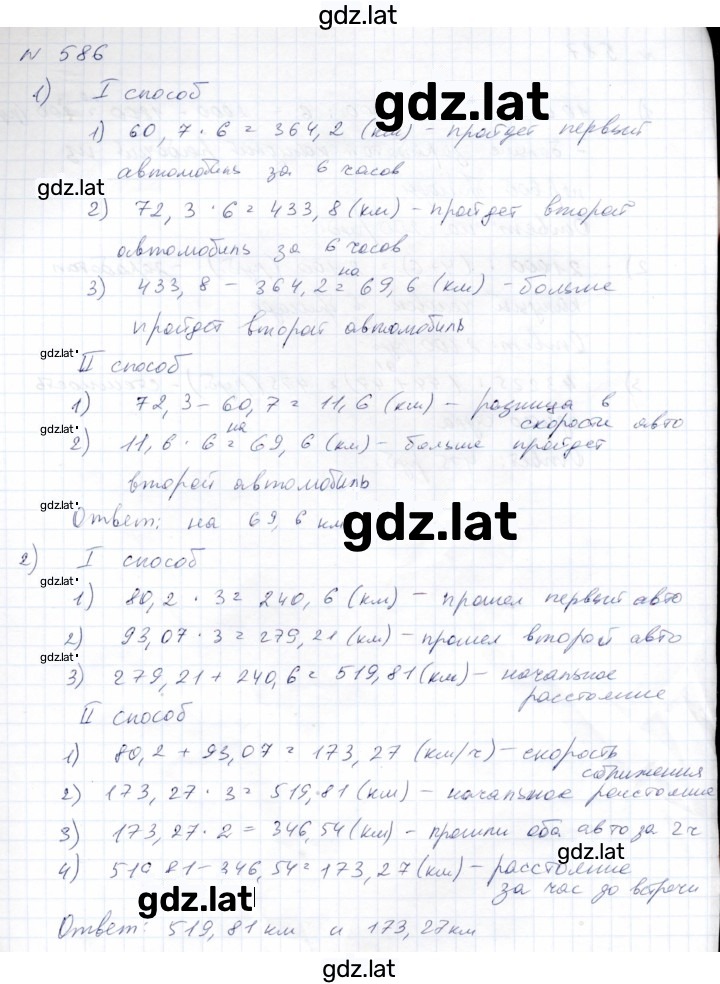 gdz.lat
N 586
1) I способ
gdz.lat
1) 60,7 · 6 = 364,2 (км) - пройдет первый
автомобиль за 6 часов
gdz.lat
2) 72,3 · 6 = 433,8 (км) - пройдет второй
автомобиль за 6 часов
3) 433,8 - 364,2 = на 69,6 (км) - больше
пройдет второй автомобиль
gdz.lat
II способ
1) 72,3 - 60,7 = 11,6 (км) - разница в
скорости авто
gdz.lat
2) 11,6 · 6 = на 69,6 (км) - больше пройдет
второй автомобиль
gdz.lat
Ответ: на 69,6 км
gdz.lat
2) I способ
gdz.lat
1) 80,2 · 3 = 240,6 (км) - прошел первый авто
2) 93,07 · 3 = 279,21 (км) - прошел второй авто
gdz.lat
3) 279,21 + 240,6 = 519,81 (км) - начальное
расстояние
II способ
1) 80,2 + 93,07 = 173,27 (км/ч) - скорость
сближения
2) 173,27 · 3 = 519,81 (км) - начальное расстояние
3) 173,27 · 2 = 346,54 (км) - прошли оба авто за 2ч
gdz.lat
4) 519,81 - 346,54 = 173,27 (км) - расстояние
за час до встречи
gdz.lat
Ответ: 519,81 км и 173,27 км
gdz.lat